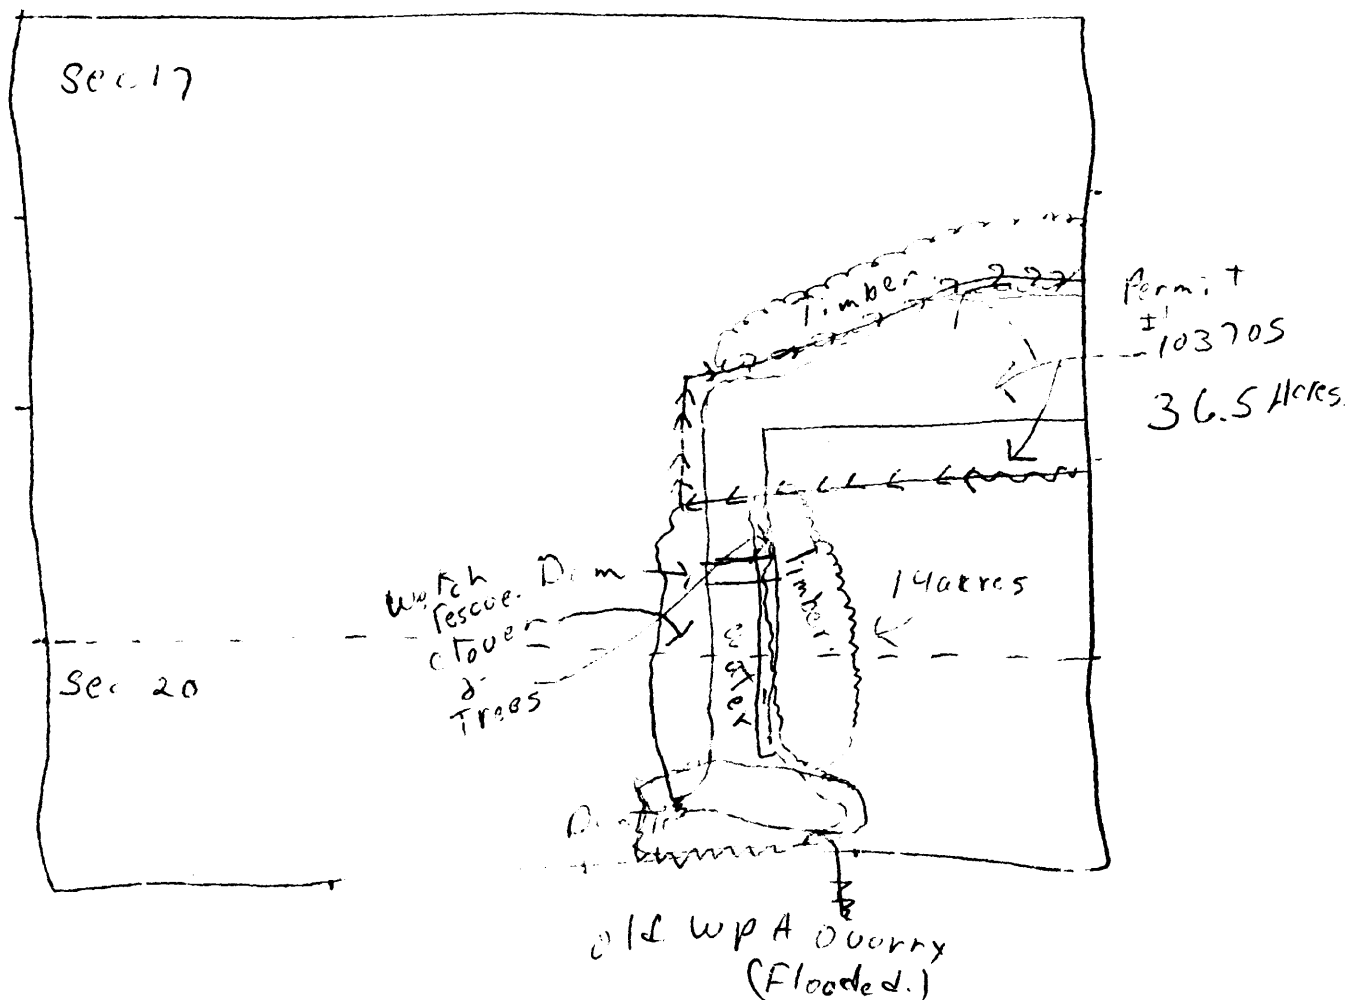 Sec. 17
Timber
Permit
#
103705
36.5 Acres
Dam
rescue.
clover
&
Trees
Timber
14 acres
Water
Sec 20
old WPA Quorry
(Flooded.)